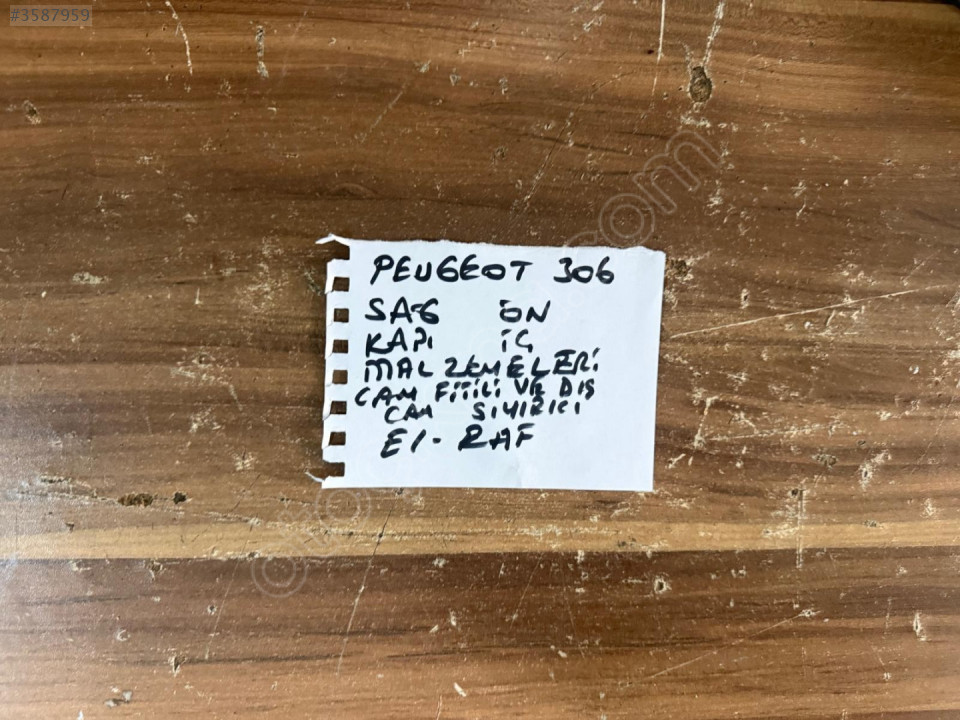 #3587959
PEUGEOT 306
SAG ÖN
KAPI İÇ
MALZEMELERİ
CAM FİTİLİ VE DIŞ
CAM SIYIRICI
E1- RAF
.com